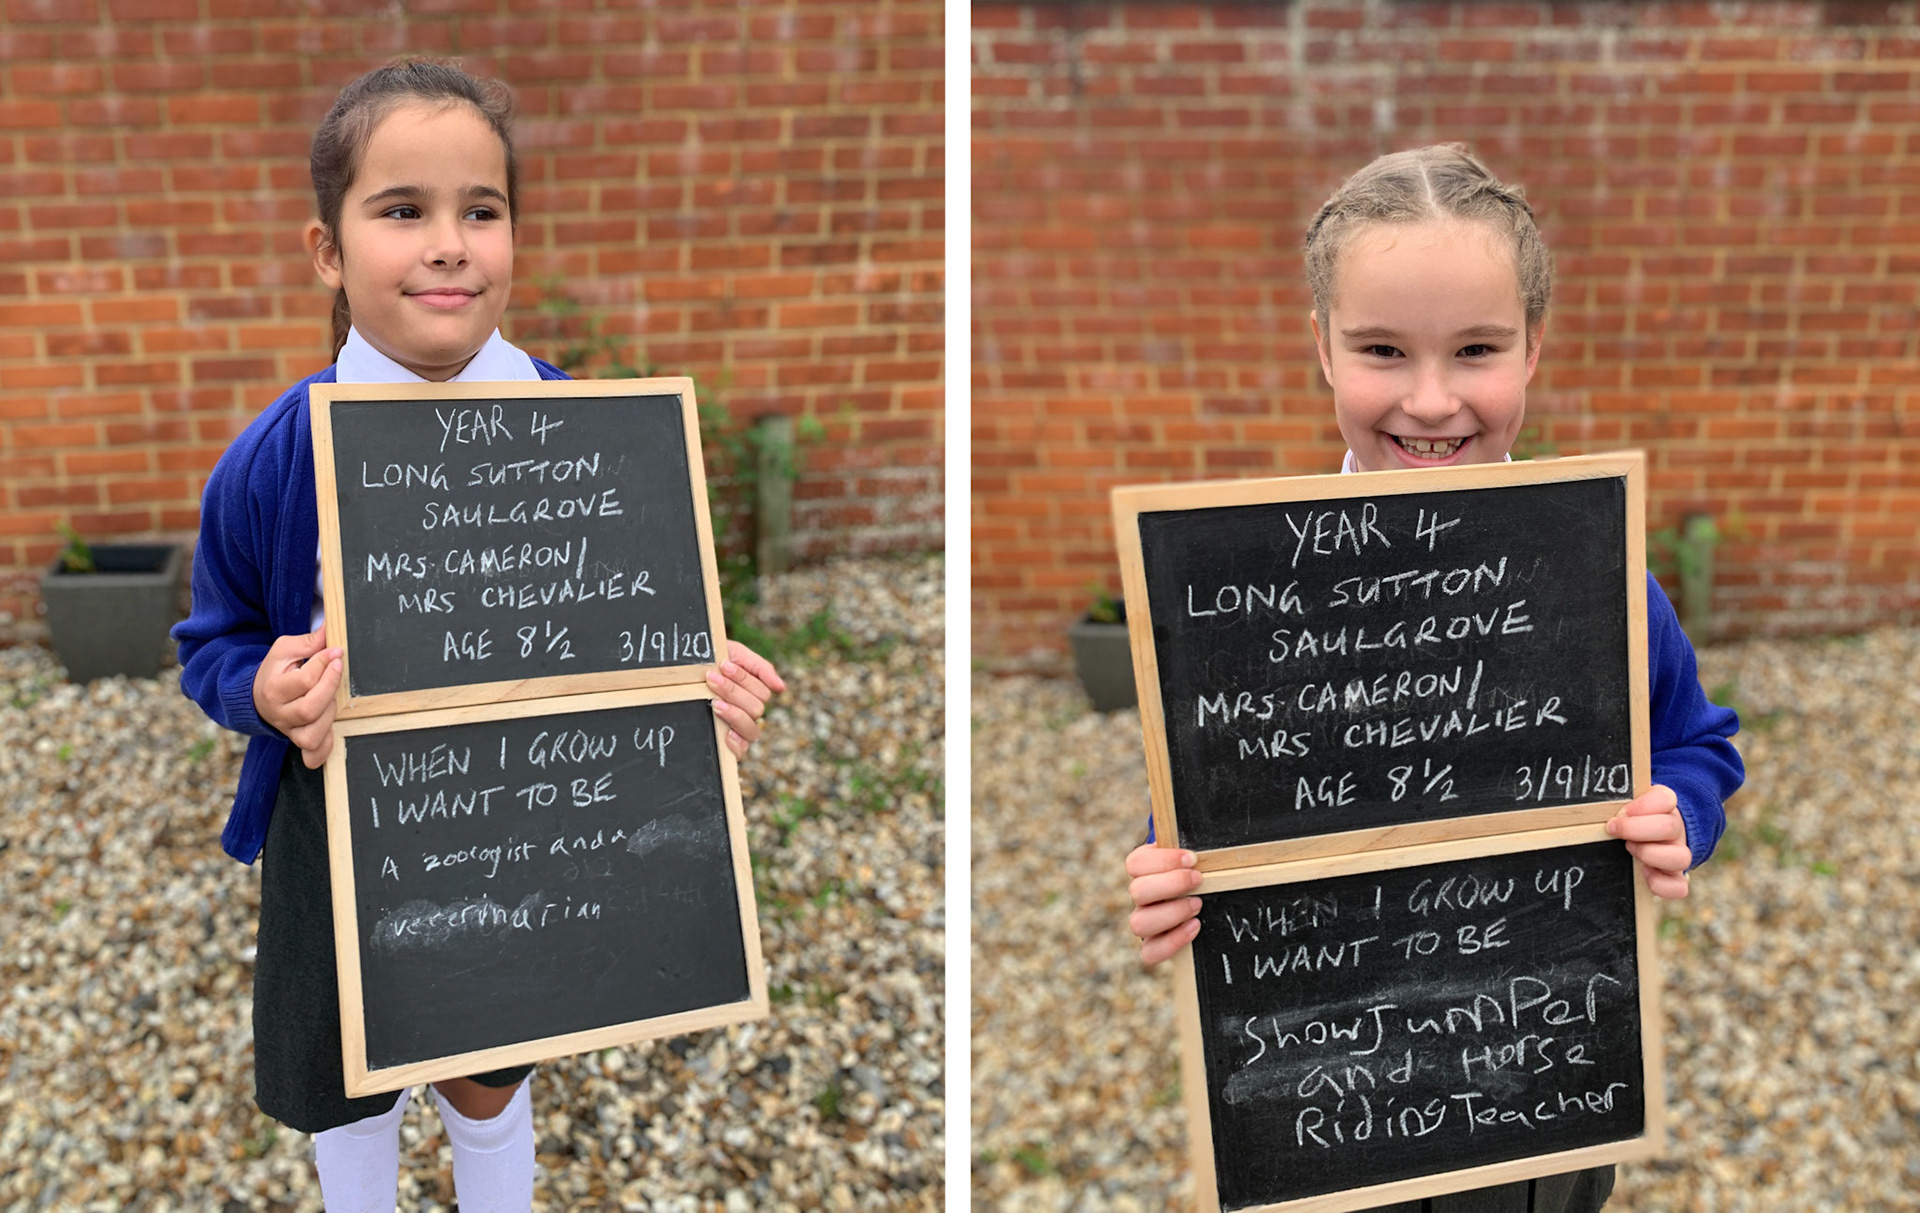 YEAR 4
LONG SUTTON
SAULGROVE
MRS CAMERON/
MRS CHEVALIER
AGE 8½ 3/9/20
WHEN I GROW UP
I WANT TO BE
A zoologist and a
veterinarian
YEAR 4
LONG SUTTON
SAULGROVE
MRS CAMERON/
MRS CHEVALIER
AGE 8½ 3/9/20
WHEN I GROW UP
I WANT TO BE
ShowJumPer
and Horse
Riding Teacher